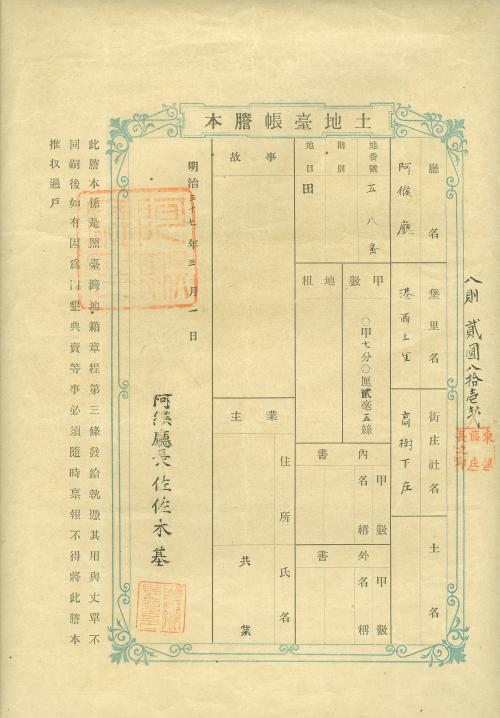 土地臺帳謄本
廳名
阿緱廳
堡里名
港西上里
街庄社名
高樹下庄
土名
地番號
五八番
則別
地目
田
甲數
〇甲七分〇厘貳毫五絲
地租
內書
甲數
名稱
外書
甲數
名稱
事故
業主
住所
氏名
共業
明治三十七年三月一日
阿緱廳長佐佐木基
此謄本係是照臺灣地籍章程第三條發給執憑其用與丈單不
同嗣後如有因為口墾典賣等事必須隨時稟報不得將此謄本
推収過戶
八則 貳圓八拾壹